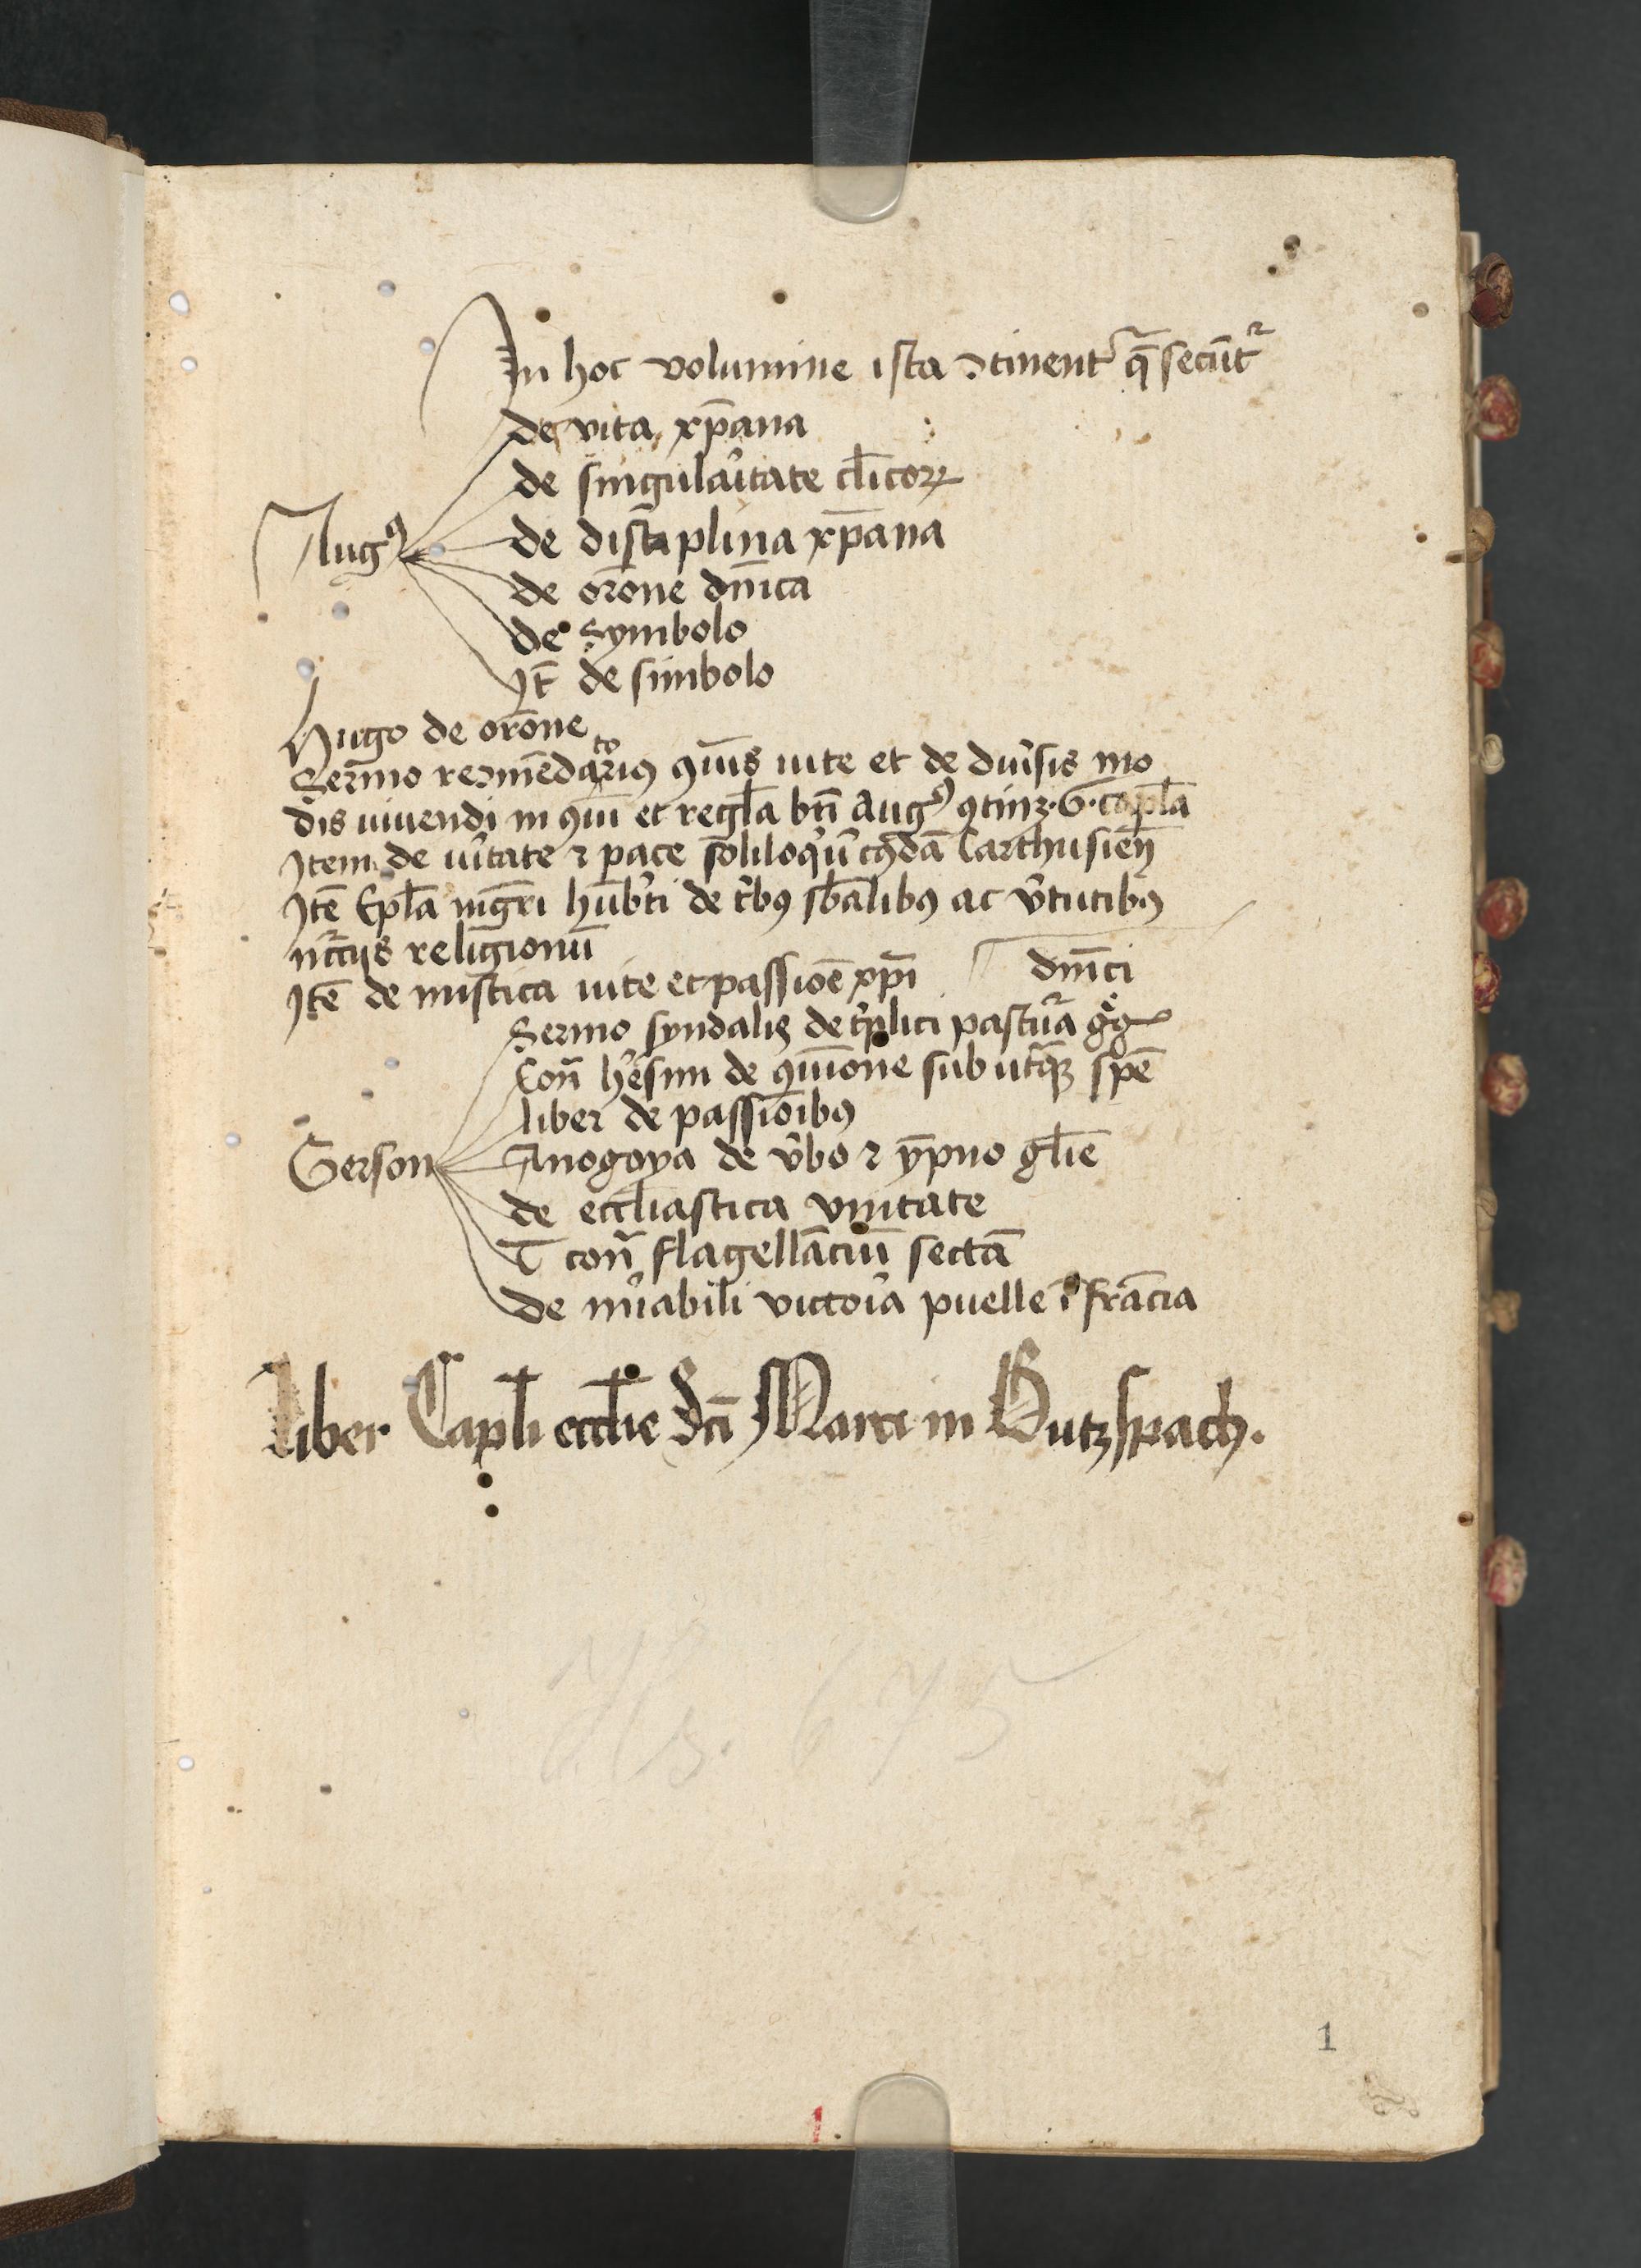 In hoc volumine ista ꝯtinent᷑ q̄ secūt᷑
de vita xp̄ana
de singula͛itate cl̄icoꝝ
Augꝰ de disciplina xp̄ana
de orōne dn̄ica
de Symbolo
Jt̄ de simbolo
Hugo de orōne
Sermo reꝯmēdatorius ꝯūis uite et de diu͛sis mo
dis uiuendi in ꝯūi et regl̄a bt̄i Augꝰ ꝯtinꝫ · 6 · capl̄a
Item de u͛itate ⁊ pace soliloq͛ū cꝰdā Carthusien̄
Jtē Epl̄a mgr̄i hūb͛ti de t͛bꝰ sb̄alibꝰ ac v͛tutibꝰ
religionū
Jtē de mistica uite et passiōē xp̄i dn̄ici
Sermo synodalis de t͛plici pastura gͦgͦ
Con̄ h͛esim de ꝯūione sub utraqꝫ spē
liber de passioībꝰ
Gerson Anogoya de v͛bo ⁊ ympno gl̄ie
de eccl̄iastica vnitate
T con̄ flagellāciū sectā
de mi͛abili victo͛ia puelle ī frācia
Liber Capl̄i eccl̄ie Sct̄i Marci in Butzspach.
Hs. 675
1
1